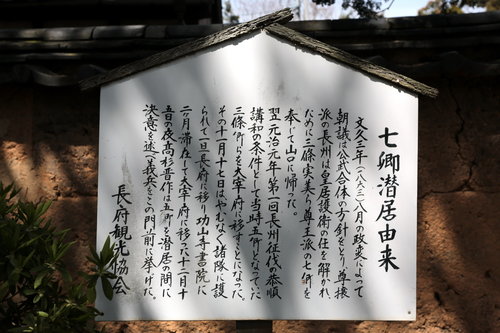 七卿潜居由来
文久三年(一八六三)八月の政変によって
朝議は公武合体の方針をとり尊攘
派の長州は皇居護衛の任を解かれ
ために三條実美ら尊王派の七卿を
奉じて山口に帰った。
翌元治元年第一回長州征伐の恭順
講和の条件として当時五卿となってた
三條卿らを太宰府に移すことになった。
その十一月十七日はやむなく諸隊に護
られて一旦長府に移り功山寺書院に
二ヶ月滞在して太宰府に移った十二月十
五日の夜高杉晋作は五卿を潜居の間に
決意を述べ義兵をこの門前に挙げた。
長府観光協会